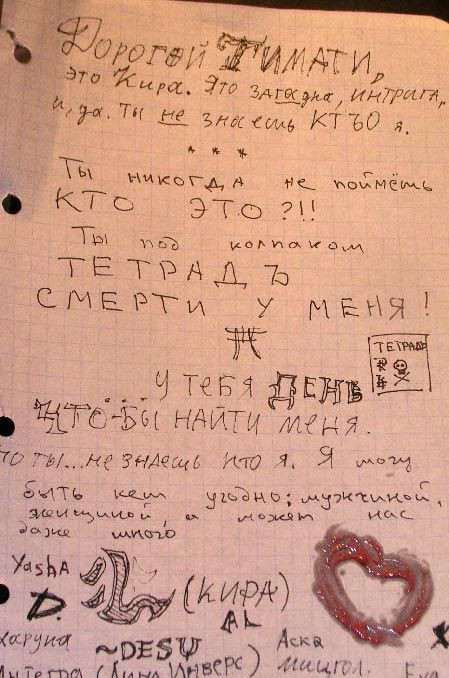 Дорогой Тимати,
это Кира. Это загадка, интрига,
и, да. Ты не знаешь КТЪО я.
* * *
Ты никогда не поймёшь
КТО ЭТО?!!
Ты под колпаком
ТЕТРАДЪ
СМЕРТИ У МЕНЯ!
ТЕТРАДЬ
У тебя ДЕНЬ
ЧТО-БЫ НАЙТИ меня.
но ты... не знаешь кто я. Я могу
быть кем угодно: мужчиной,
женщиной, а может нас
даже много
YashA
D.
L (КИРА)
AL
Харуна
~DESU
Аска
Интегра (Лина Инверс)